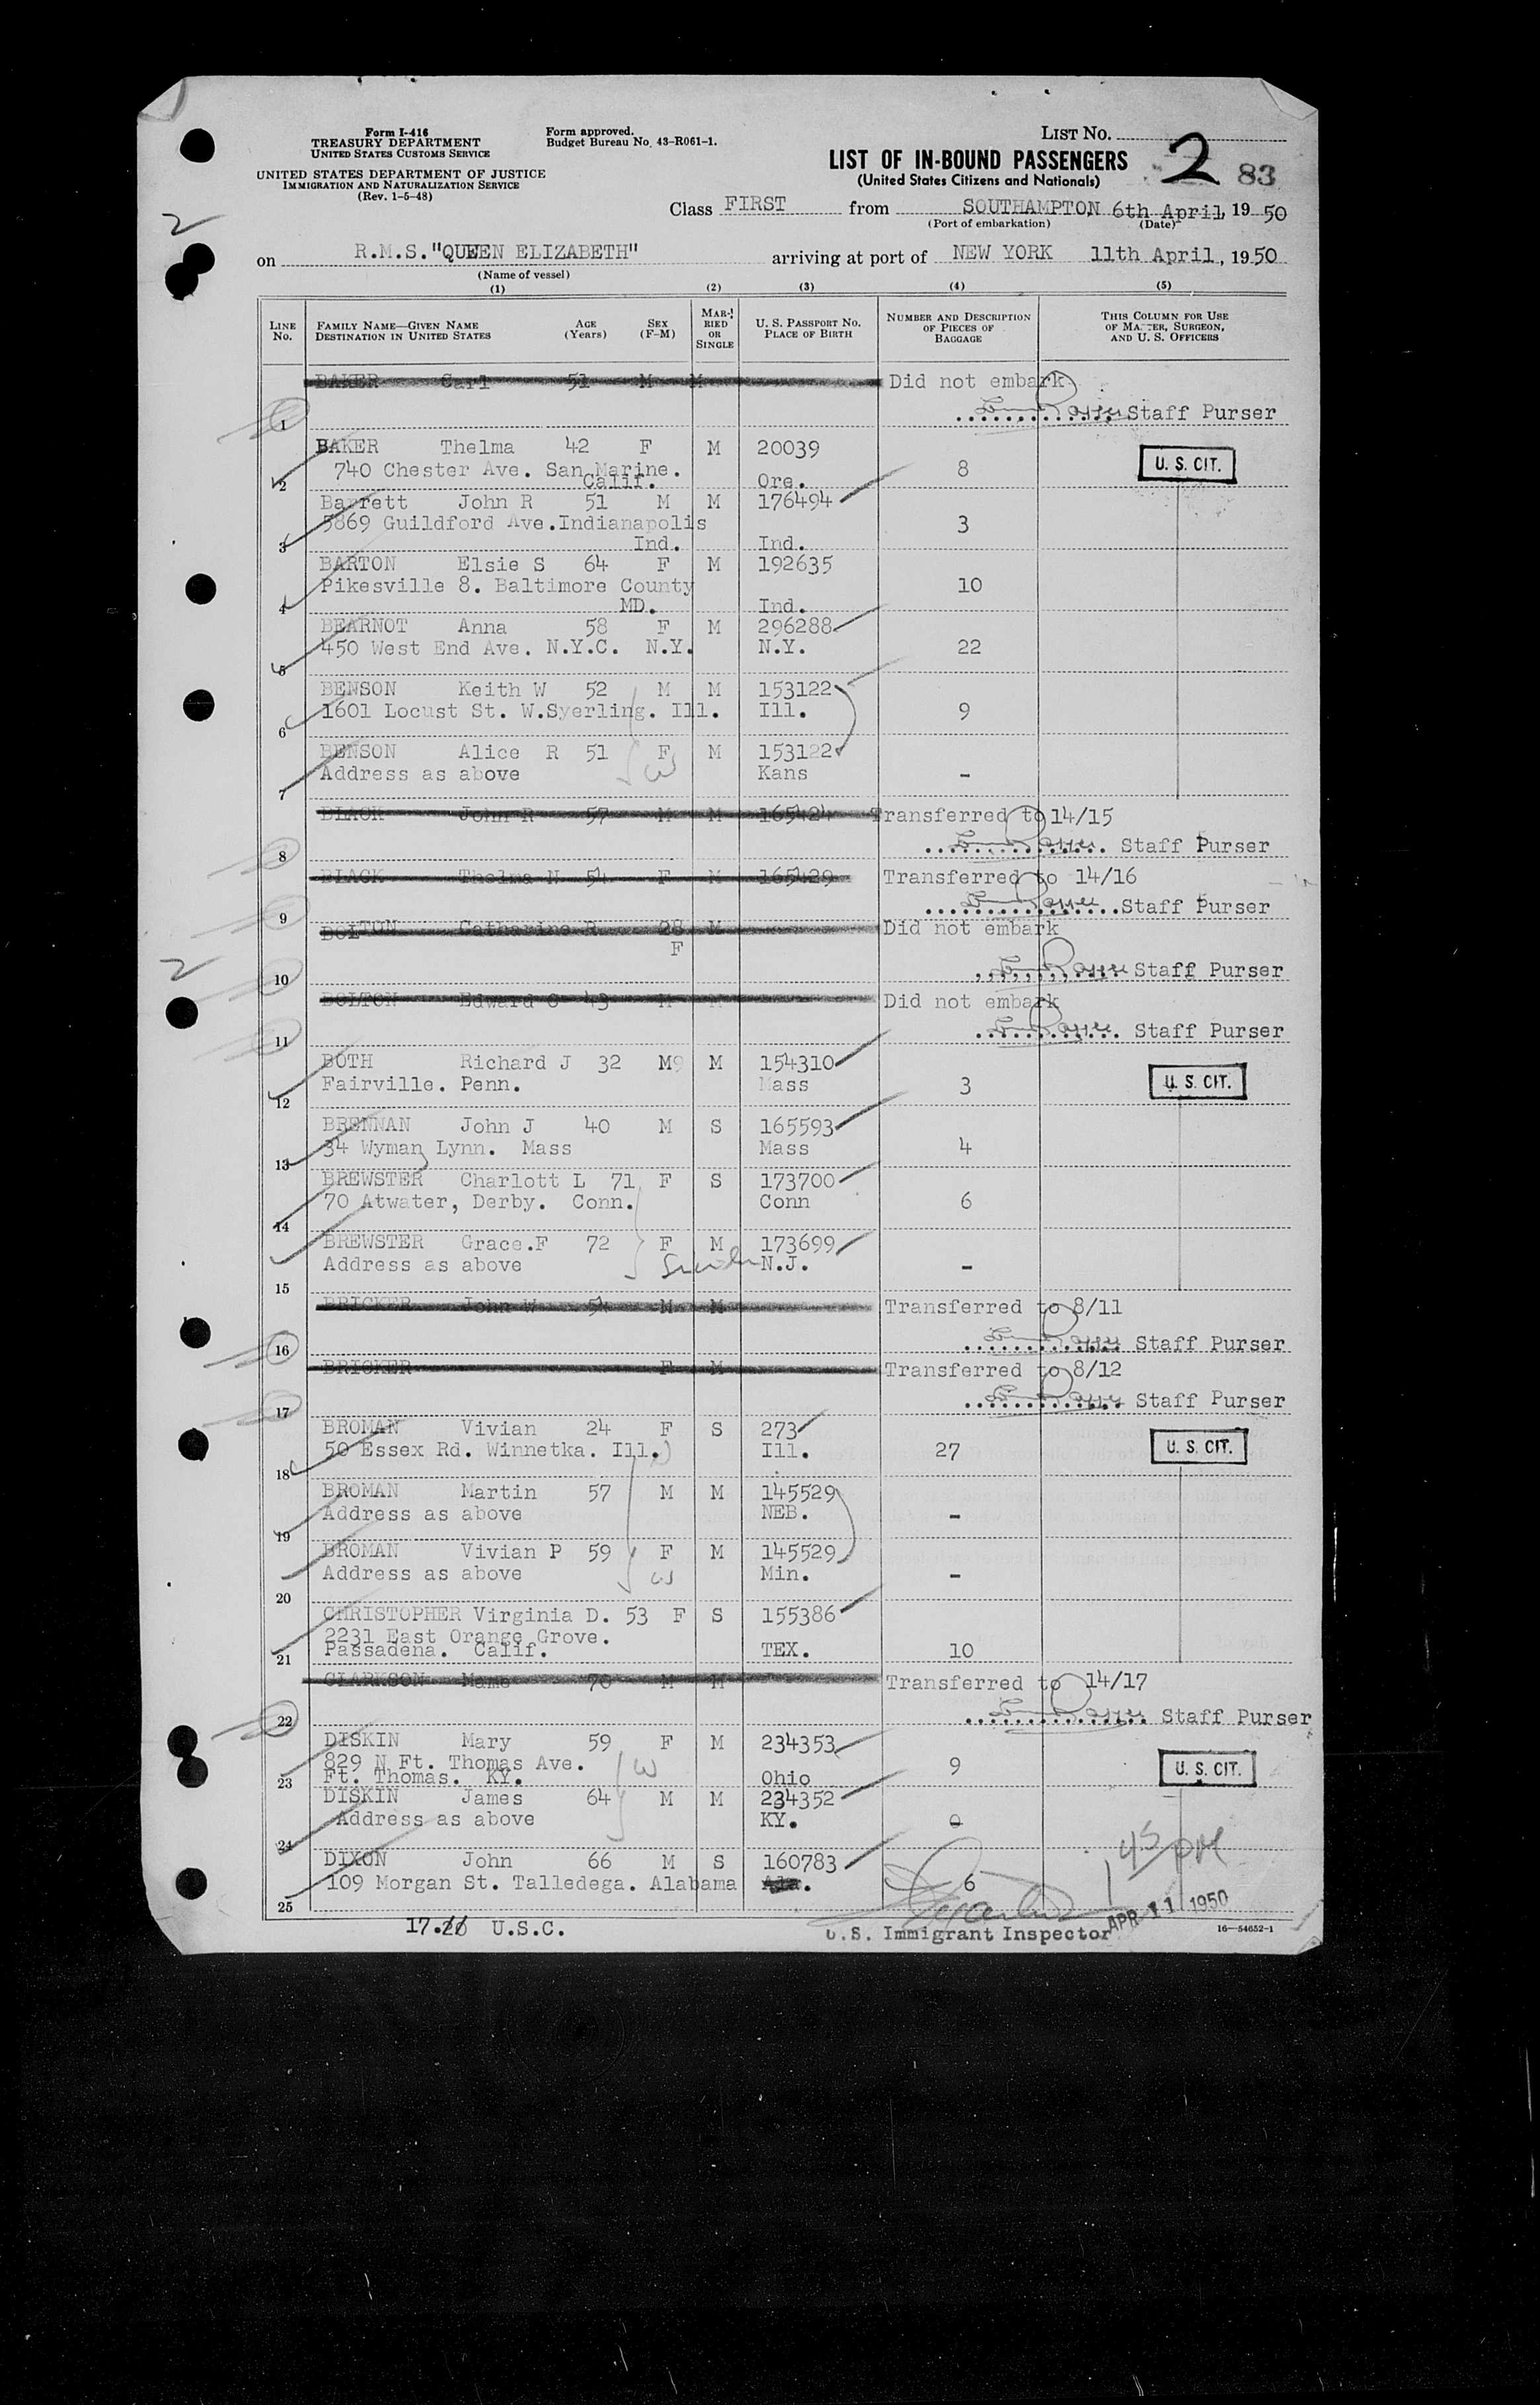 Form I-416
TREASURY DEPARTMENT
UNITED STATES CUSTOMS SERVICE
UNITED STATES DEPARTMENT OF JUSTICE
IMMIGRATION AND NATURALIZATION SERVICE
(Rev. 1-5-48)
Form approved.
Budget Bureau No. 43-R061-1.
LIST No.
2 83
LIST OF IN-BOUND PASSENGERS
(United States Citizens and Nationals)
2
Class FIRST from SOUTHAMPTON 6th April, 19 50
(Port of embarkation) (Date)
on R.M.S."QUEEN ELIZABETH" arriving at port of NEW YORK 11th April, 1950
(Name of vessel)
(1) (2) (3) (4) (5)
LINE No. FAMILY NAME—GIVEN NAME DESTINATION IN UNITED STATES AGE (Years) SEX (F-M) MARRIED OR SINGLE U. S. PASSPORT No. PLACE OF BIRTH NUMBER AND DESCRIPTION OF PIECES OF BAGGAGE THIS COLUMN FOR USE OF MASTER, SURGEON, AND U. S. OFFICERS
BAKER Carl 51 M M Did not embark
1 Staff Purser
BAKER Thelma 42 F M 20039
740 Chester Ave. San Marine. 8 U. S. CIT.
2 Calif. Ore.
Barrett John R 51 M M 176494
5869 Guildford Ave.Indianapolis 3
3 Ind. Ind.
BARTON Elsie S 64 F M 192635
Pikesville 8. Baltimore County 10
4 MD. Ind.
BEARNOT Anna 58 F M 296288
450 West End Ave. N.Y.C. N.Y. N.Y. 22
5
BENSON Keith W 52 M M 153122
1601 Locust St. W.Syerling. Ill. Ill. 9
6
BENSON Alice R 51 F M 153122
Address as above W Kans -
7
BLACK John R 57 M M 165424 Transferred to 14/15
8 Staff Purser
BLACK Thelma N 54 F M 165429 Transferred to 14/16
9 Staff Purser
BOLTON Catharine R 28 M Did not embark
F
2
10 Staff Purser
BOLTON Edward C 43 M M Did not embark
11 Staff Purser
BOTH Richard J 32 M9 M 154310
Fairville. Penn. Mass 3 U. S. CIT.
12
BRENNAN John J 40 M S 165593
34 Wyman Lynn. Mass Mass 4
13
BREWSTER Charlott L 71 F S 173700
70 Atwater, Derby. Conn. Conn 6
14
BREWSTER Grace.F 72 F M 173699
Address as above N.J. -
15
BRICKER John W 54 M M Transferred to 8/11
16 Staff Purser
BRICKER F M Transferred to 8/12
17 Staff Purser
BROMAN Vivian 24 F S 273
50 Essex Rd. Winnetka. Ill. Ill. 27 U. S. CIT.
18
BROMAN Martin 57 M M 145529
Address as above NEB. -
19
BROMAN Vivian P 59 F M 145529
Address as above W Min. -
20
CHRISTOPHER Virginia D. 53 F S 155386
2231 East Orange Grove.
Passadena. Calif. TEX. 10
21
CLARKSON Mame 70 M M Transferred to 14/17
22 Staff Purser
DISKIN Mary 59 F M 234353
829 N Ft. Thomas Ave. W 9 U. S. CIT.
23 Ft. Thomas. KY. Ohio
DISKIN James 64 M M 234352
Address as above KY. 0
24
DIXON John 66 M S 160783
109 Morgan St. Talledega. Alabama Ala. 6
25
45 PM
17. U.S.C. U.S. Immigrant Inspector APR 11 1950 16—54652-1